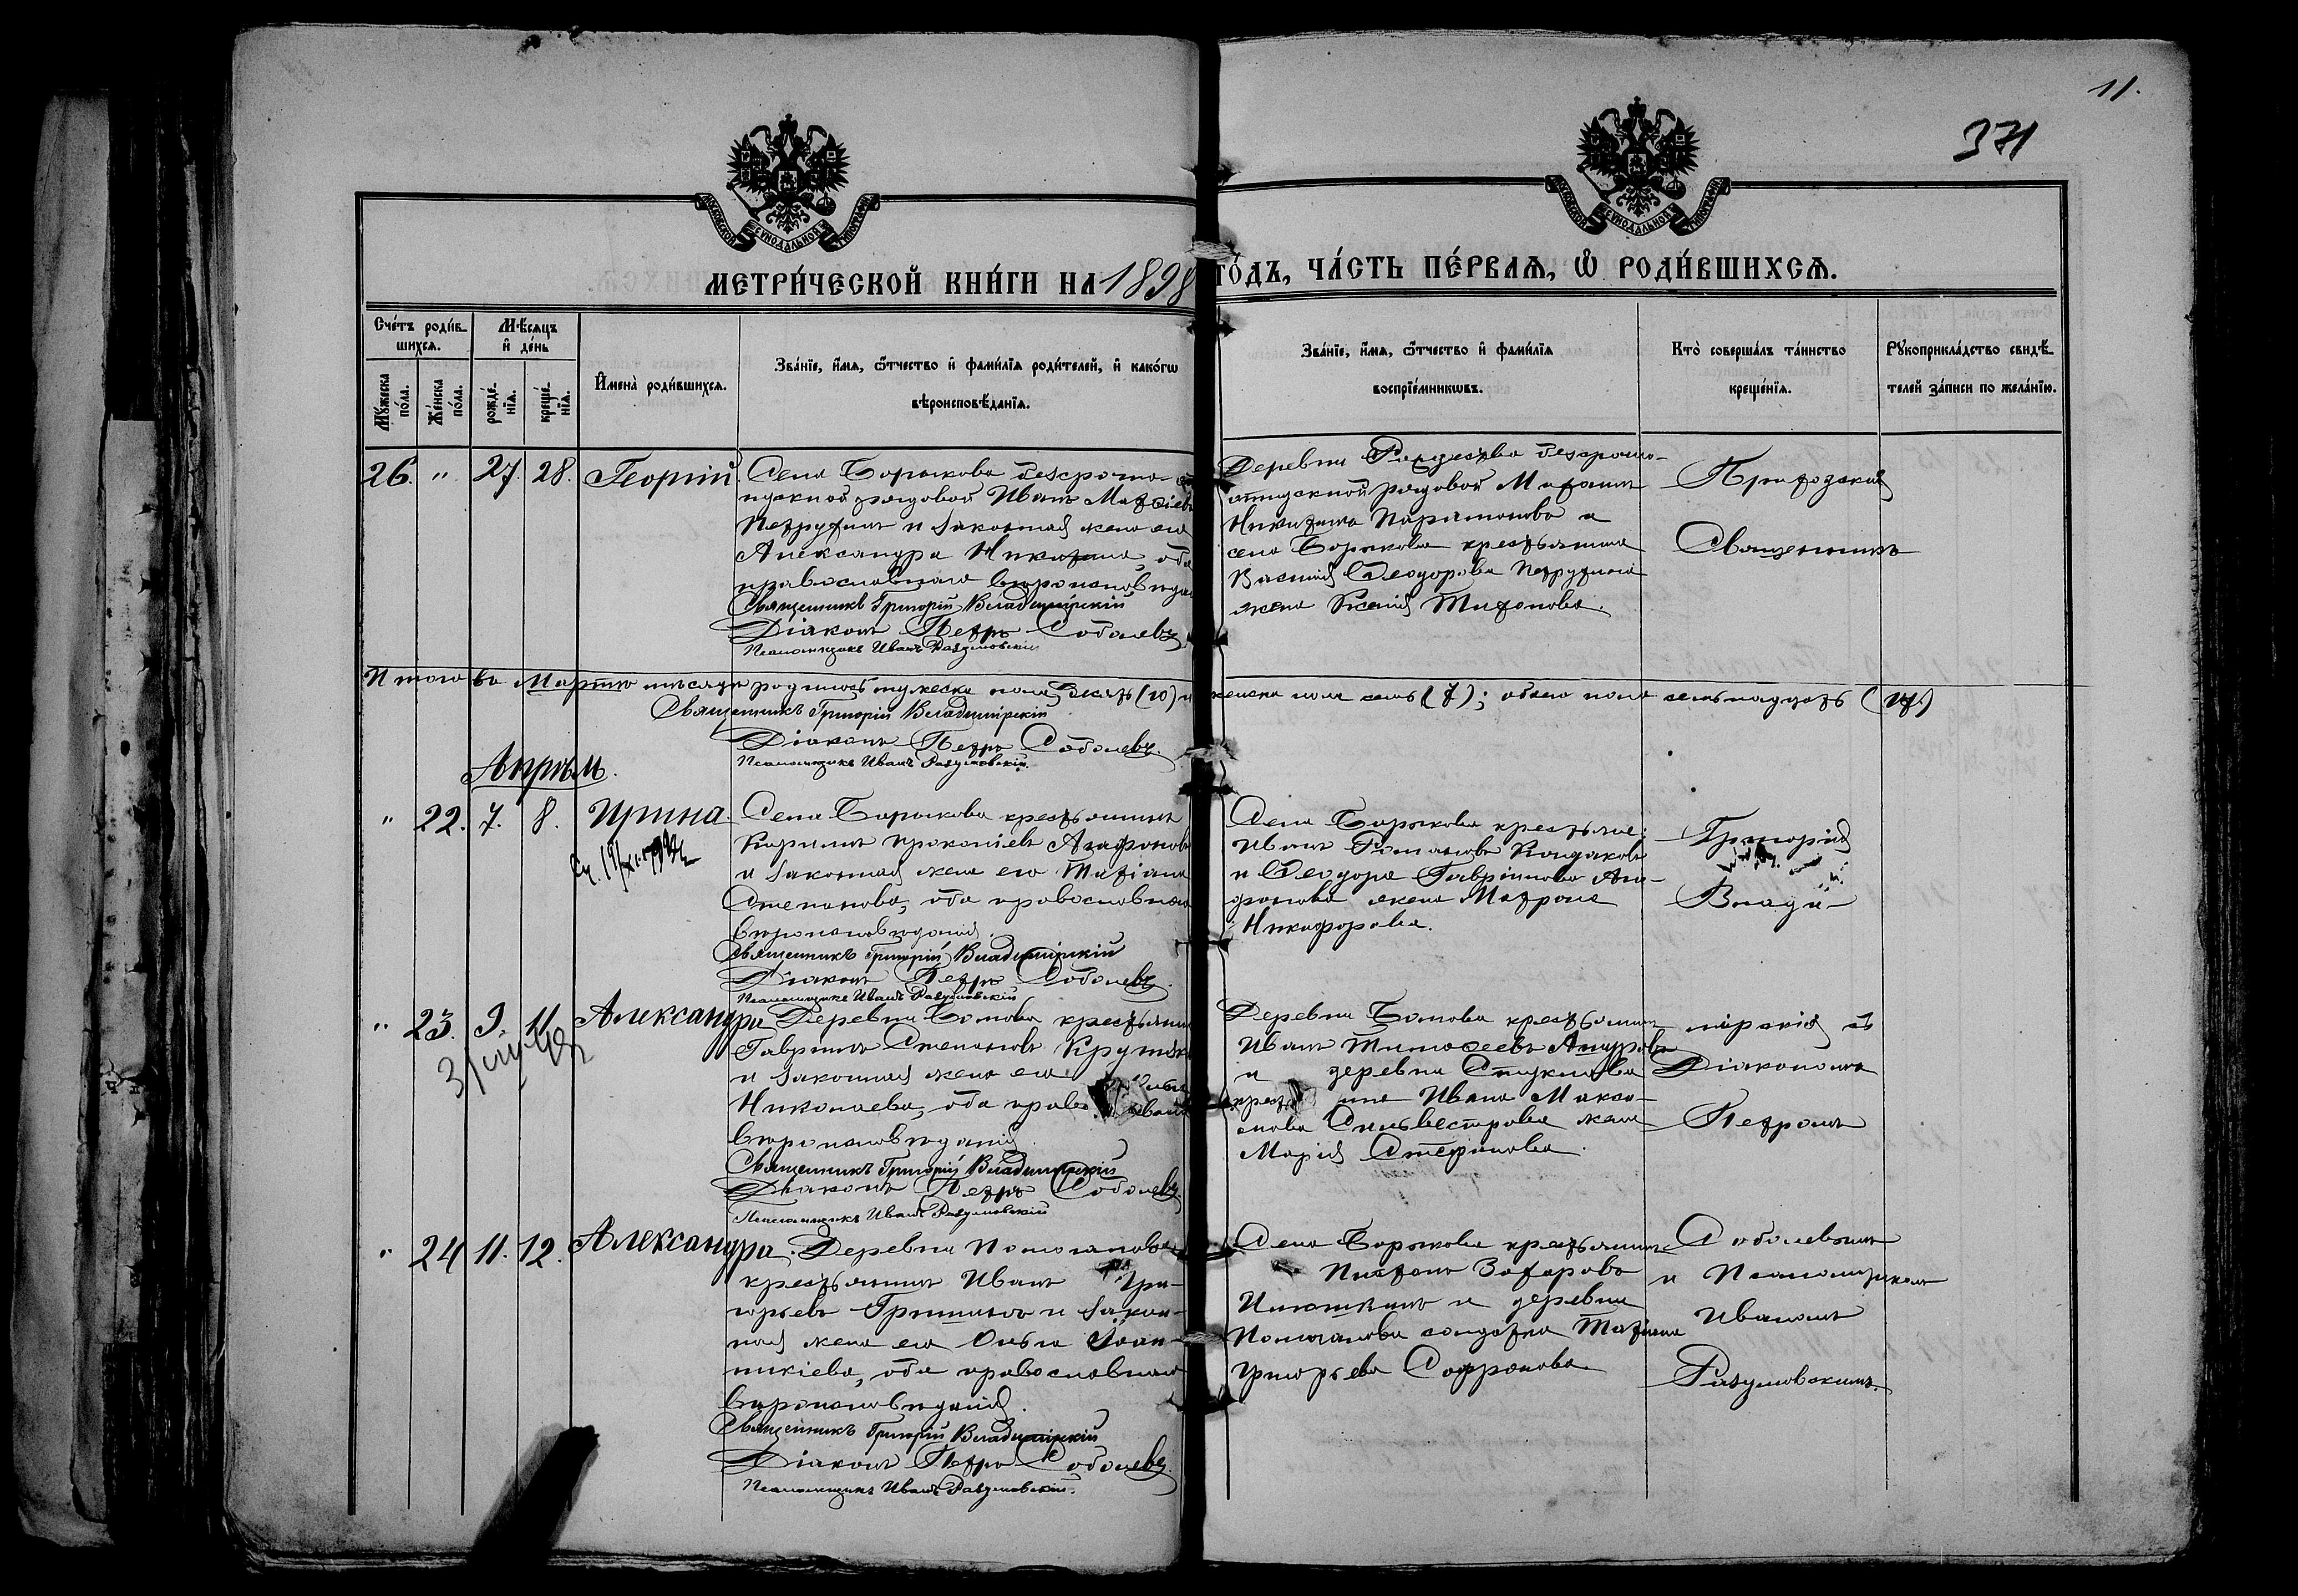 11.
371
МОСКОВСКОЙ СѴНОДАЛЬНОЙ ТИПОГРАФІИ
МОСКОВСКОЙ СѴНОДАЛЬНОЙ ТИПОГРАФІИ
МЕТРИ́ЧЕСКОЙ КНИ́ГИ НА 1898 ГО́ДЪ, ЧА́СТЬ ПЕ́РВАЯ, Ѽ РОДИ́ВШИХСЯ.
Сче́тъ роди́в-
шихся.
Мѣ́сяцъ
и҆ де́нь
Мꙋ́жеска по́ла.
Же́нска по́ла.
рожде́нїя.
креще́нїя.
И҆мена̀ роди́вшихся.
Зва́нїе, и҆́мя, ѻ҆́тчество и҆ фами́лїя роди́телей, и҆ како́гѡ
вѣроисповѣ́данїя.
Зва́нїе, и҆́мя, ѻ҆́тчество и҆ фами́лїя
воспрїе́мникѡвъ.
Кто̀ соверша́лъ та́инство
креще́нїя.
Рꙋкоприкла́дство свидѣ́-
телей за́писи по жела́нїю.
26. " 27. 28. Георгій.
Села Борыкова безсрочно-от
пускной рядовой Иванъ Матѳіевъ
Петрухинъ и законная жена его
Александра Никитина, оба
православнаго вѣроисповѣда
Священникъ Григорій Владимірскій
Діаконъ Петръ Соболевъ
Псаломщикъ Иванъ Разумовскій
Деревни Рождества безсрочно-
отпускной рядовой
Никитина Парамонова и
села Борыкова крестьянина
Василія Ѳеодорова Петрухина
жена Ксенія Тихонова.
Приходскій
Священникъ
Итого въ Мартѣ мѣсяцѣ родилось мужеска пола десять (10) и женска пола семь (7); обоего пола семьнадцать (17)
Священникъ Григорій Владимірскій
Діаконъ Петръ Соболевъ.
Псаломщикъ Иванъ Разумовскій.
Апрѣль.
" 22. 7. 8. Ирина.
Села Борыкова крестьянинъ
Кириллъ Прокопіевъ Агафоновъ
и законная жена его Татіана
Степанова, оба православнаго
вѣроисповѣданія.
Священникъ Григорій Владимірскій
Діаконъ Петръ Соболевъ.
Псаломщикъ Иванъ Разумовскій
Села Борыкова крестьяне:
Иванъ Романовъ Кондаковъ
и Ѳеодора Гавріилова Ага-
фонова жена Матрона
Никифорова.
Григорій
Влади-
" 23. 9. 11. Александра
Деревни Бонова крестьянинъ
Гавріилъ Степановъ
и законная жена его
Николаева, оба православнаго
вѣроисповѣданія.
Священникъ Григорій Владимірскій
Діаконъ Петръ Соболевъ.
Псаломщикъ Иванъ Разумовскій
Деревни Бонова крестьянинъ
Иванъ Тимоѳеевъ
и деревни
Ивана Макси-
мова Сильвестрова жена
Марія Стефанова.
мірскій съ
Діакономъ
Петромъ
" 24 11. 12. Александра.
Деревни
крестьянинъ Иванъ Гри-
горьевъ Гришинъ и закон-
ная жена его Ольга Іоан-
никіева, оба православнаго
вѣроисповѣданія.
Священникъ Григорій Владимірскій
Діаконъ Петръ Соболевъ.
Псаломщикъ Иванъ Разумовскій.
Села Борыкова крестьянинъ
Платонъ Захаровъ
и деревни
солдатка Татіана
Григорьева Софронова.
Соболевымъ
и Псаломщикомъ
Иваномъ
Разумовскимъ.